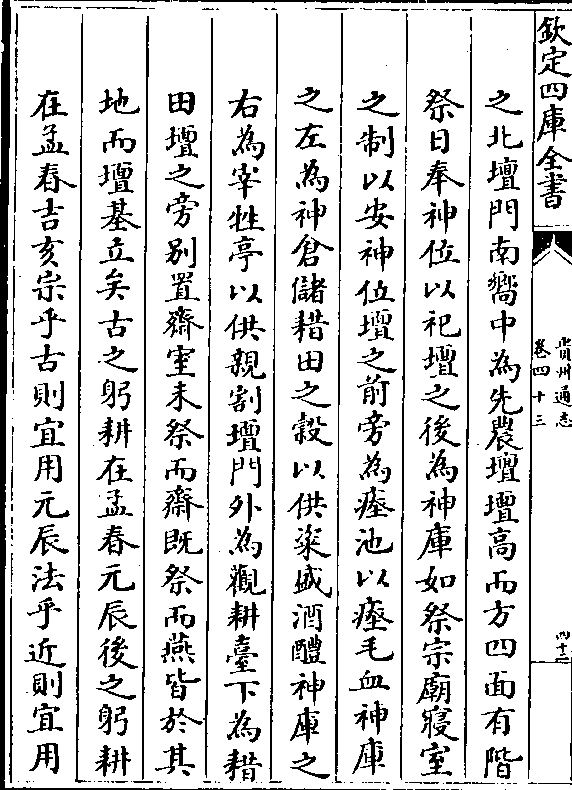 欽定四庫全書
貴州通志
卷四十三
四十二
之北壇門南嚮中為先農壇壇高而方四面有階
祭日奉神位以祀壇之後為神庫如祭宗廟寢室
之制以安神位壇之前旁為瘞池以瘞毛血神庫
之左為神倉儲耤田之穀以供粢盛酒醴神庫之
右為宰牲亭以供親割壇門外為觀耕臺下為耤
田壇之旁別置齋室未祭而齋既祭而燕皆於其
地而壇基立矣古之躬耕在孟春元辰後之躬耕
在孟春吉亥宗乎古則宜用元辰法乎近則宜用